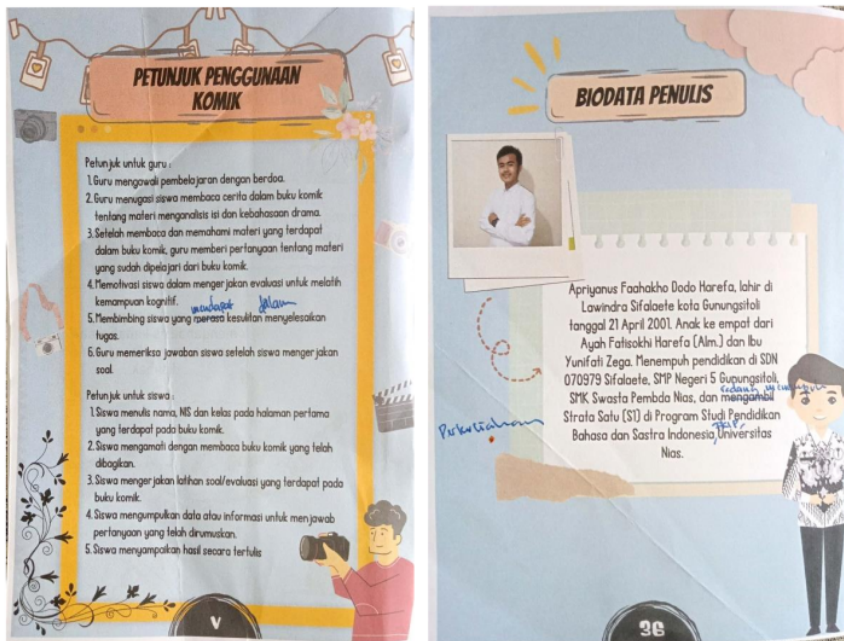 PETUNJUK PENGGUNAAN
KOMIK
Petunjuk untuk guru :
1. Guru mengawali pembelajaran dengan berdoa.
2. Guru menugasi siswa membaca cerita dalam buku komik
tentang materi menganalisis isi dan kebahasaan drama.
3. Setelah membaca dan memahami materi yang terdapat
dalam buku komik, guru memberi pertanyaan tentang materi
yang sudah dipelajari dari buku komik.
4. Memotivasi siswa dalam mengerjakan evaluasi untuk melatih
kemampuan kognitif.
mendapat dalam
5. Membimbing siswa yang merasa kesulitan menyelesaikan
tugas.
6. Guru memeriksa jawaban siswa setelah siswa mengerjakan
soal.
Petunjuk untuk siswa :
1. Siswa menulis nama, NIS dan kelas pada halaman pertama
yang terdapat pada buku komik.
2. Siswa mengamati dengan membaca buku komik yang telah
dibagikan.
3. Siswa mengerjakan latihan soal/evaluasi yang terdapat pada
buku komik.
4. Siswa mengumpulkan data atau informasi untuk menjawab
pertanyaan yang telah dirumuskan.
5. Siswa menyampaikan hasil secara tertulis
V
BIODATA PENULIS
Apriyanus Faahakho Dodo Harefa, lahir di
Lawindra Sifalaete kota Gunungsitoli
tanggal 21 April 2001. Anak ke empat dari
Ayah Fatisokhi Harefa (Alm.) dan Ibu
Yunifati Zega. Menempuh pendidikan di SDN
070979 Sifalaete, SMP Negeri 5 Gunungsitoli,
sedang
SMK Swasta Pembda Nias, dan mengambil
Strata Satu (S1) di Program Studi Pendidikan
FKIP,
Bahasa dan Sastra Indonesia, Universitas
Nias.
36